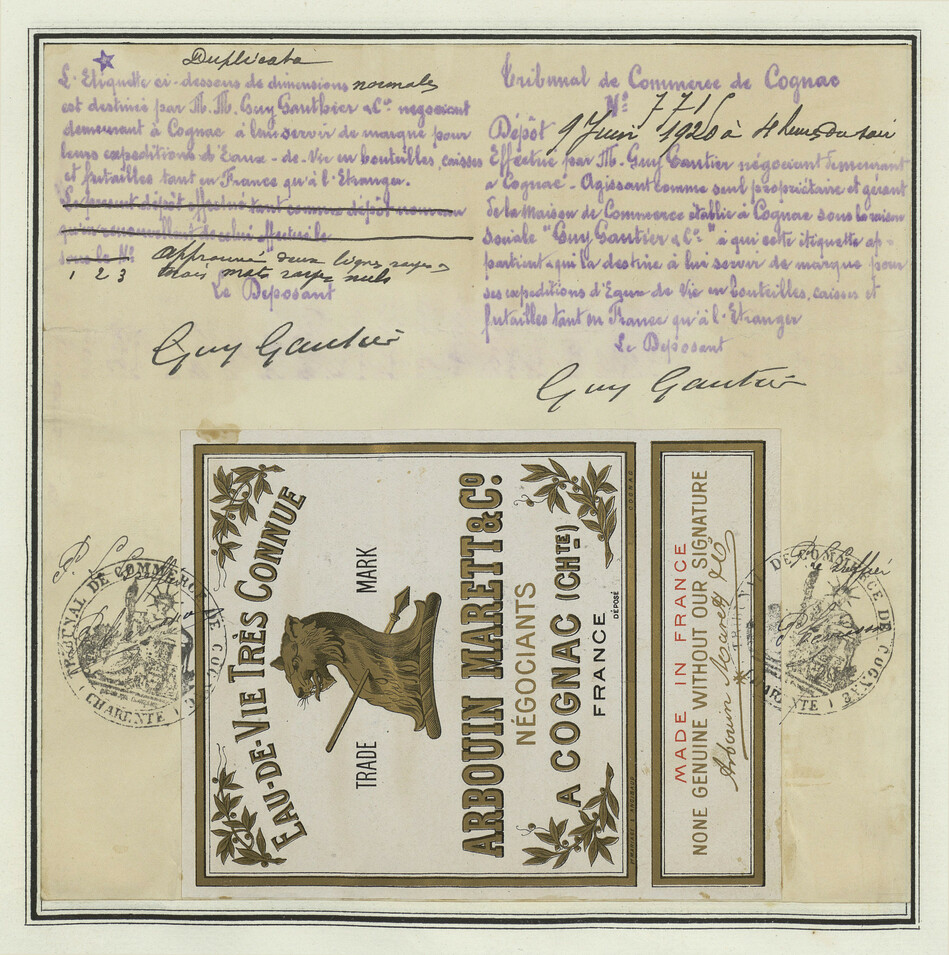 Duplicata
L'Etiquette ci-dessous de dimensions normales
est destinée par M.M. Guy Gauthier & Cº negociant
demeurant à Cognac à lui servir de marque pour
leurs expeditions d'Eaux-de-Vie en bouteilles, caisses
et futailles tant en France qu'à l'Etranger.
Le present dépôt effectué tant comme dépôt nouveau
qu'en renouvellant de celui effectué le
sous le Nº
1 2 3
approuvé deux lignes rayées
trois mots rayés nuls
Le Deposant
Guy Gautier
Tribunal de Commerce de Cognac
Nº 771
Dépôt 9 Juin 1920 à 4 heures du soir
Effectué par M. Guy Gautier négociant demeurant
à Cognac - Agissant comme seul propriétaire et gérant
de la Maison de Commerce établie à Cognac sous la raison
sociale "Guy Gautier & Cº" à qui cette étiquette ap-
partient, qui la destine à lui servir de marque pour
ses expeditions d'Eaux de Vie en bouteilles, caisses et
futailles tant en France qu'à l'Etranger
Le Deposant
Guy Gautier
EAU-DE-VIE TRÈS CONNUE
TRADE MARK
ARBOUIN MARETT & Cº
NÉGOCIANTS
A COGNAC (CHTE)
FRANCE
DÉPOSÉ
COGNAC
MADE IN FRANCE
NONE GENUINE WITHOUT OUR SIGNATURE
Arbouin Marett & Co
TRIBUNAL DE COMMERCE DE COGNAC
(CHARENTE)
DE COMMERCE DE COGNAC